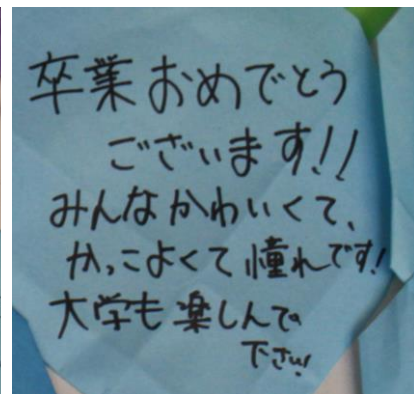 卒業おめでとう
ございます!!
みんなかわいくて、
かっこよくて憧れです!
大学も楽しんで
下さい!